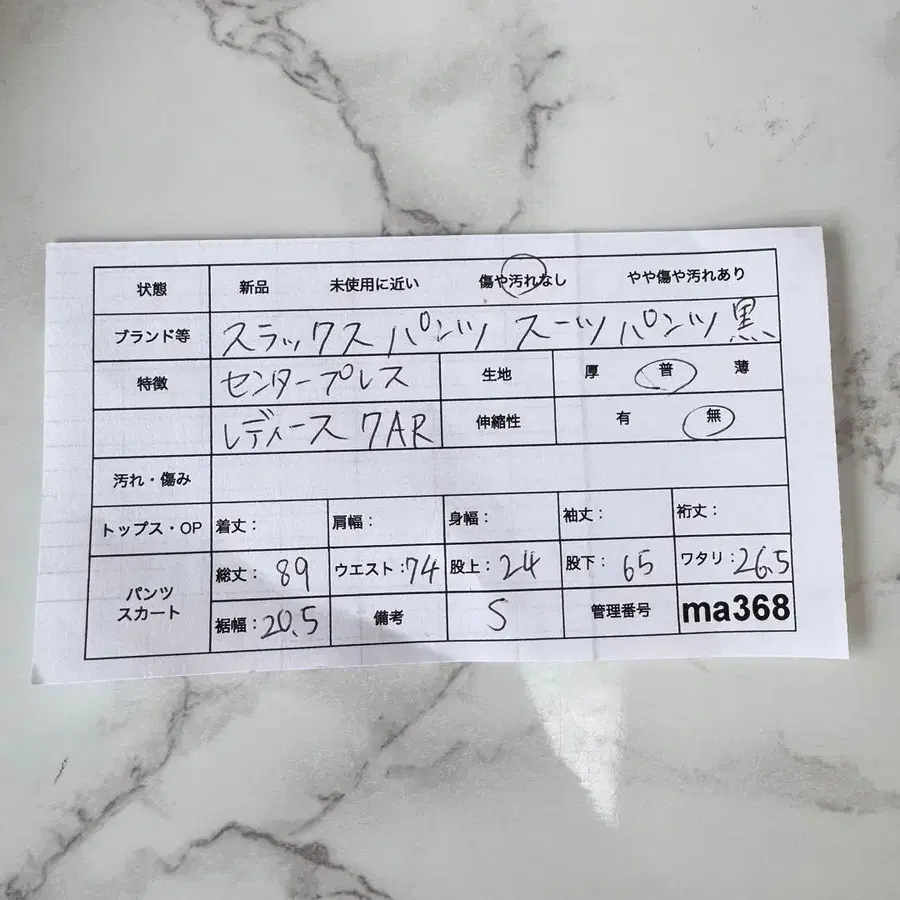 状態 新品 未使用に近い 傷や汚れなし やや傷や汚れあり
ブランド等 スラックスパンツ スーツパンツ 黒
特徴 センタープレス 生地 厚 普 薄
レディース 7AR 伸縮性 有 無
汚れ・傷み
トップス・OP 着丈: 肩幅: 身幅: 袖丈: 裄丈:
パンツ
スカート
総丈: 89 ウエスト:74 股上: 24 股下: 65 ワタリ:26.5
裾幅:20.5 備考 S 管理番号 ma368